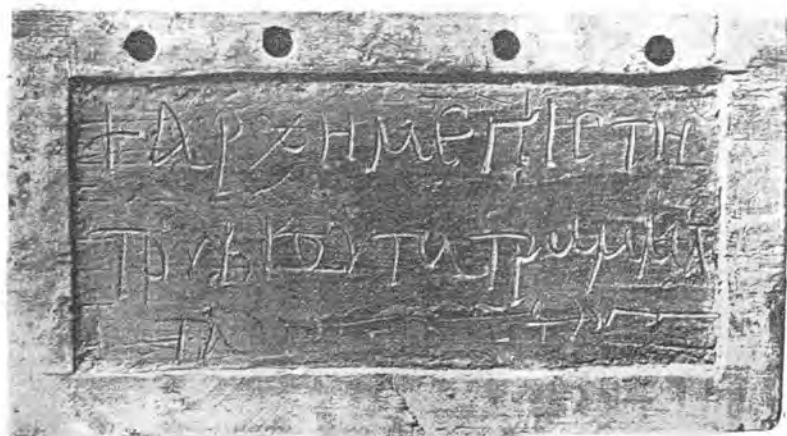 + ΑΡΧΗ ΜΕΓΙСΤΗ
ΤΟΥ ΒΙΟΥ ΤΑ ΓΡΑΜΜΑ
ΤΑ